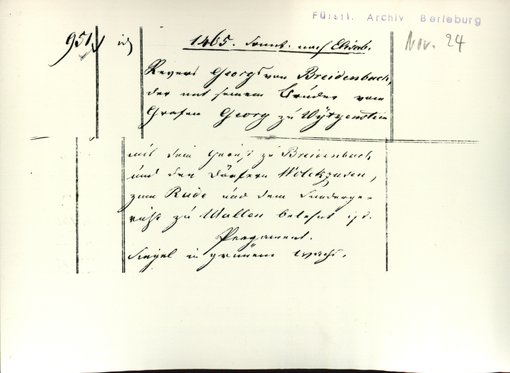 Fürstl. Archiv Berleburg
951
1465. Sonnt. nach Elisab.
Nov. 24
Revers Georgs von Breidenbach,
der mit seinem Bruder vom
Grafen Georg zu Wytgenstein
mit dem Gericht zu Breidenbach
und den Dörfern
zum Rode und dem
zu Wallen belehnt ist.
Pergament.
Siegel in grünem Wachs.